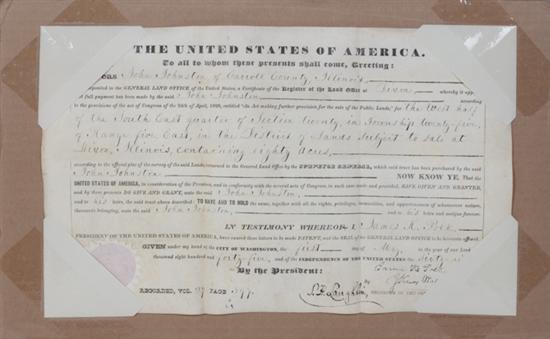 THE UNITED STATES OF AMERICA.
To all to whom these presents shall come, Greeting:
John Johnston of Carroll County, Illinois,
deposited in the GENERAL LAND OFFICE of the United States, a Certificate of the Register of the Land Office at Dixon whereby it
full payment has been made by the said John Johnston according
to the provisions of the act of Congress of the 24th of April, 1820, entitled "An Act making further provision for the sale of the Public Lands," for the West half
of the South East quarter of Section twenty, in Township twenty five,
of Range five East, in the District of Lands Subject to sale at
Dixon, Illinois, containing eighty acres,
according to the official plat of the survey of the said Lands, returned to the General Land Office by the SURVEYOR GENERAL, which said tract has been purchased by the said
John Johnston NOW KNOW YE, That the
UNITED STATES OF AMERICA, in consideration of the Premises, and in conformity with the several acts of Congress, in such case made and provided, HAVE GIVEN AND GRANTED,
and by these presents DO GIVE AND GRANT, unto the said John Johnston,
and to his heirs, the said tract above described: TO HAVE AND TO HOLD the same, together with all the rights, privileges, immunities, and appurtenances of whatsoever nature,
thereunto belonging, unto the said John Johnston, and to his heirs and assigns forever.
IN TESTIMONY WHEREOF, I, James K. Polk
PRESIDENT OF THE UNITED STATES OF AMERICA, have caused these letters to be made PATENT, and the SEAL of the GENERAL LAND OFFICE to be hereunto affixed.
GIVEN under my hand at the CITY OF WASHINGTON, the first day of May, in the year of our Lord
thousand eight hundred and forty five, and of the INDEPENDENCE OF THE UNITED STATES the Sixty
By the President: James K. Polk
By
S. H. Laughlin
RECORDED, VOL. PAGE